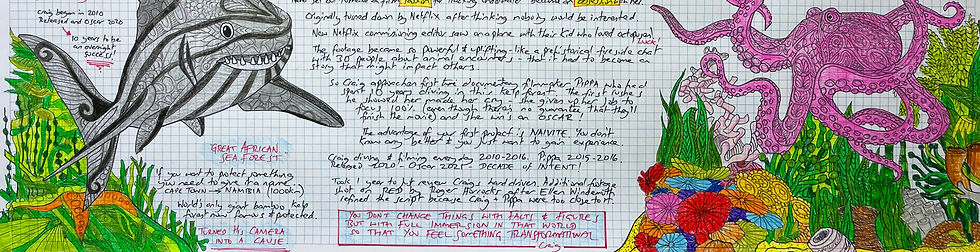 Craig began in 2010
Released and Oscar 2020
10 years to be
an overnight
success!
Originally turned down by Netflix after thinking nobody would be interested.
New Netflix commissioning editor saw on a plane with their kid who loved octopuses
LUCK!
The footage became so powerful & uplifting - like a prehistorical fireside chat
with 30 people about animal encounters - that it had to become an
story that might impact others.
So Craig approached first time documentary filmmaker PIPPA who had
spent 10 years diving in this kelp forest. The first rushes
he showed her made her cry - she gave up her job to
focus 100% (even though there's no guarantee that they'll
finish the movie) and she wins an OSCAR!
The advantage of your first project is NAIVITE. You don't
know any better & you just want to gain experience.
Craig diving & filming everyday 2010-2016. Pippa 2015-2016.
Released 2020 - Oscar 2021 DECADE OF INTENT!
Took 1 year to just review Craig's hard drives. Additional footage
shot on RED by Roger Horrocks after Ellen Windemuth
refined the script because Craig & Pippa were too close to it.
GREAT AFRICAN
SEA FOREST
If you want to protect something
you need to give it a name.
CAPE TOWN → NAMIBIA (1000km)
World's only giant bamboo kelp
forest now famous & protected.
TURNED HIS CAMERA
INTO A CAUSE
YOU DON'T CHANGE THINGS WITH FACTS & FIGURES
BUT WITH FULL IMMERSION IN THAT WORLD
SO THAT YOU FEEL SOMETHING TRANSFORMATIONAL
Craig